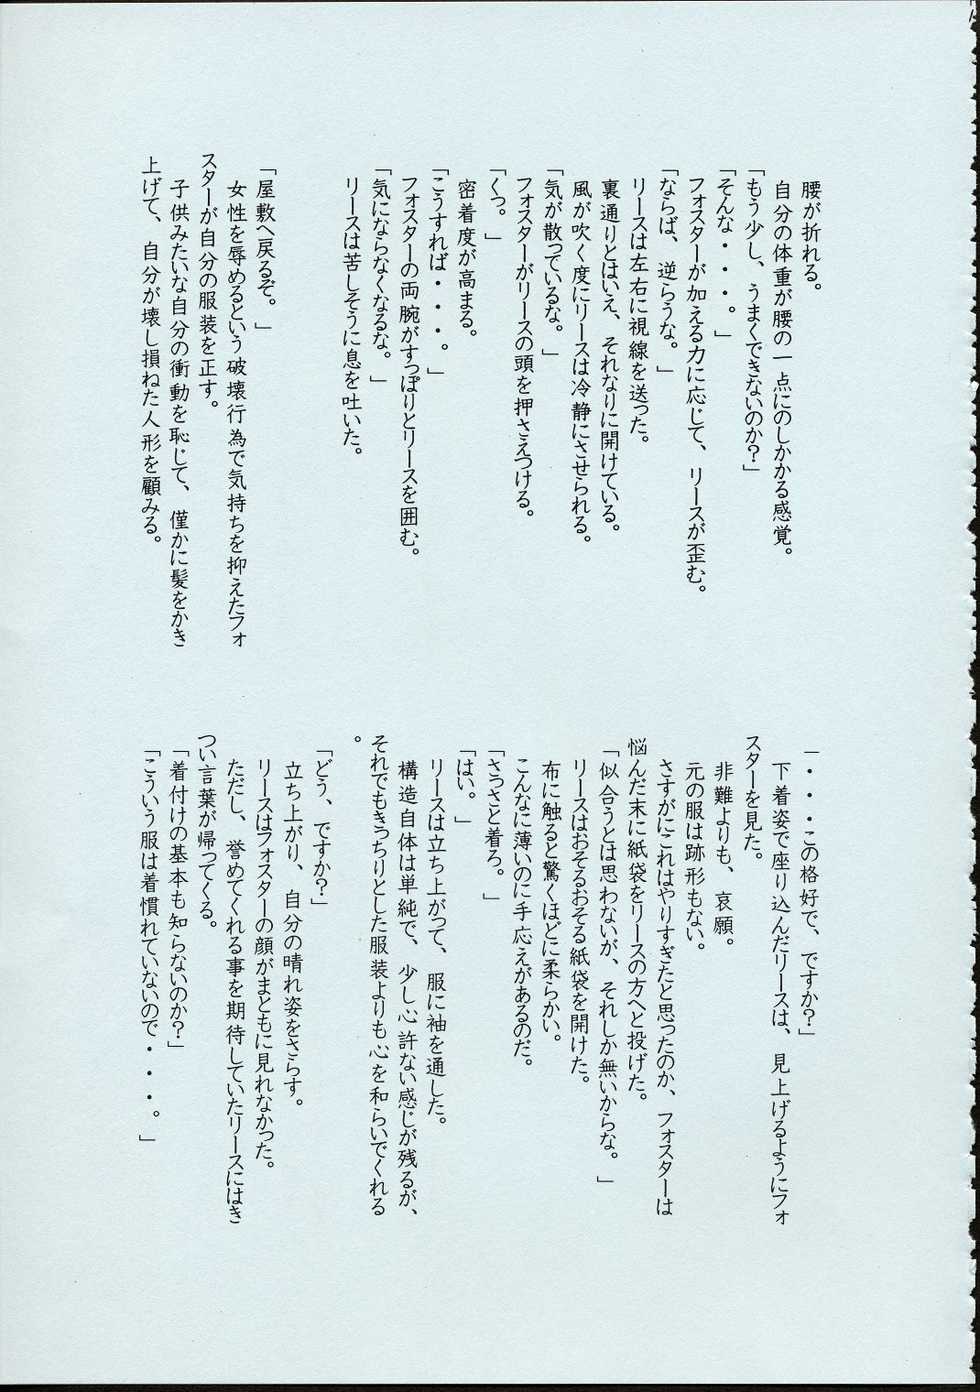 腰が折れる。
自分の体重が腰の一点にのしかかる感覚。
「もう少し、うまくできないのか？」
「そんな・・・。」
フォスターが加える力に応じて、リースが歪む。
「ならば、逆らうな。」
リースは左右に視線を送った。
裏通りとはいえ、それなりに開けている。
風が吹く度にリースは冷静にさせられる。
「気が散っているな。」
フォスターがリースの頭を押さえつける。
「くっ。」
密着度が高まる。
「こうすれば・・・。」
フォスターの両腕がすっぽりとリースを囲む。
「気にならなくなるな。」
リースは苦しそうに息を吐いた。
「屋敷へ戻るぞ。」
女性を辱めるという破壊行為で気持ちを抑えたフォ
スターが自分の服装を正す。
子供みたいな自分の衝動を恥じて、僅かに髪をかき
上げて、自分が壊し損ねた人形を顧みる。
「・・・この格好で、ですか？」
下着姿で座り込んだリースは、見上げるようにフォ
スターを見た。
非難よりも、哀願。
元の服は跡形もない。
さすがにこれはやりすぎたと思ったのか、フォスターは
悩んだ末に紙袋をリースの方へと投げた。
「似合うとは思わないが、それしか無いからな。」
リースはおそるおそる紙袋を開けた。
布に触ると驚くほどに柔らかい。
こんなに薄いのに手応えがあるのだ。
「さっさと着ろ。」
「はい。」
リースは立ち上がって、服に袖を通した。
構造自体は単純で、少し心許ない感じが残るが、
それでもきっちりとした服装よりも心を和らいでくれる
。
「どう、ですか？」
立ち上がり、自分の晴れ姿をさらす。
リースはフォスターの顔がまともに見れなかった。
ただし、誉めてくれる事を期待していたリースにはき
つい言葉が帰ってくる。
「着付けの基本も知らないのか？」
「こういう服は着慣れていないので・・・。」